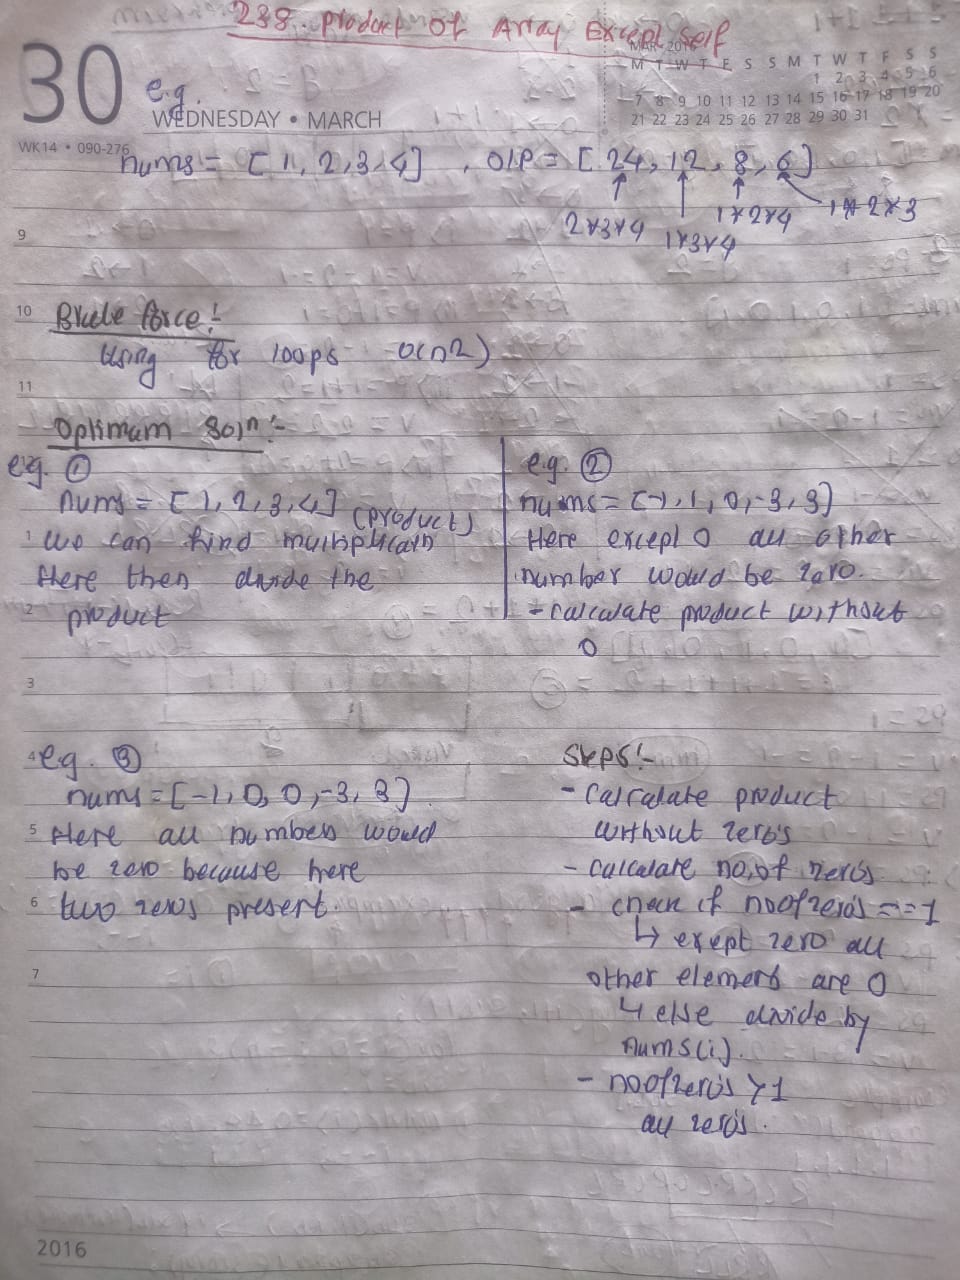 238. Product Of Array Except Self
MAR 2016
M T W T F S S M T W T F S S
1 2 3 4 5 6
7 8 9 10 11 12 13 14 15 16 17 18 19 20
21 22 23 24 25 26 27 28 29 30 31
30
e.g.
WEDNESDAY • MARCH
WK14 • 090-276
nums = [1, 2, 3, 4] , O/P = [24, 12, 8, 6]
2*3*4 1*3*4 1*2*4 1*2*3
9
10 Brute force:-
Using for loops O(n2)
11
Optimum Soln:-
e.g. ①
nums = [1, 2, 3, 4]
(product)
1 we can find
Here then divide the
2 product
e.g. ②
nums = [-1, 1, 0, -3, 3]
Here except 0 all other
number would be zero.
- calculate product without
0
3
4 e.g. ③
nums = [-1, 0, 0, -3, 3]
5 Here all numbers would
be zero because here
6 two zeros present.
7
Steps:-
- Calculate product
without zero's
- calculate no. of zero's
- check if noofzero's == 1
↳ exept zero all
other elements are 0
↳ else divide by
nums(i).
- noofzero's >1
all zero's.
2016